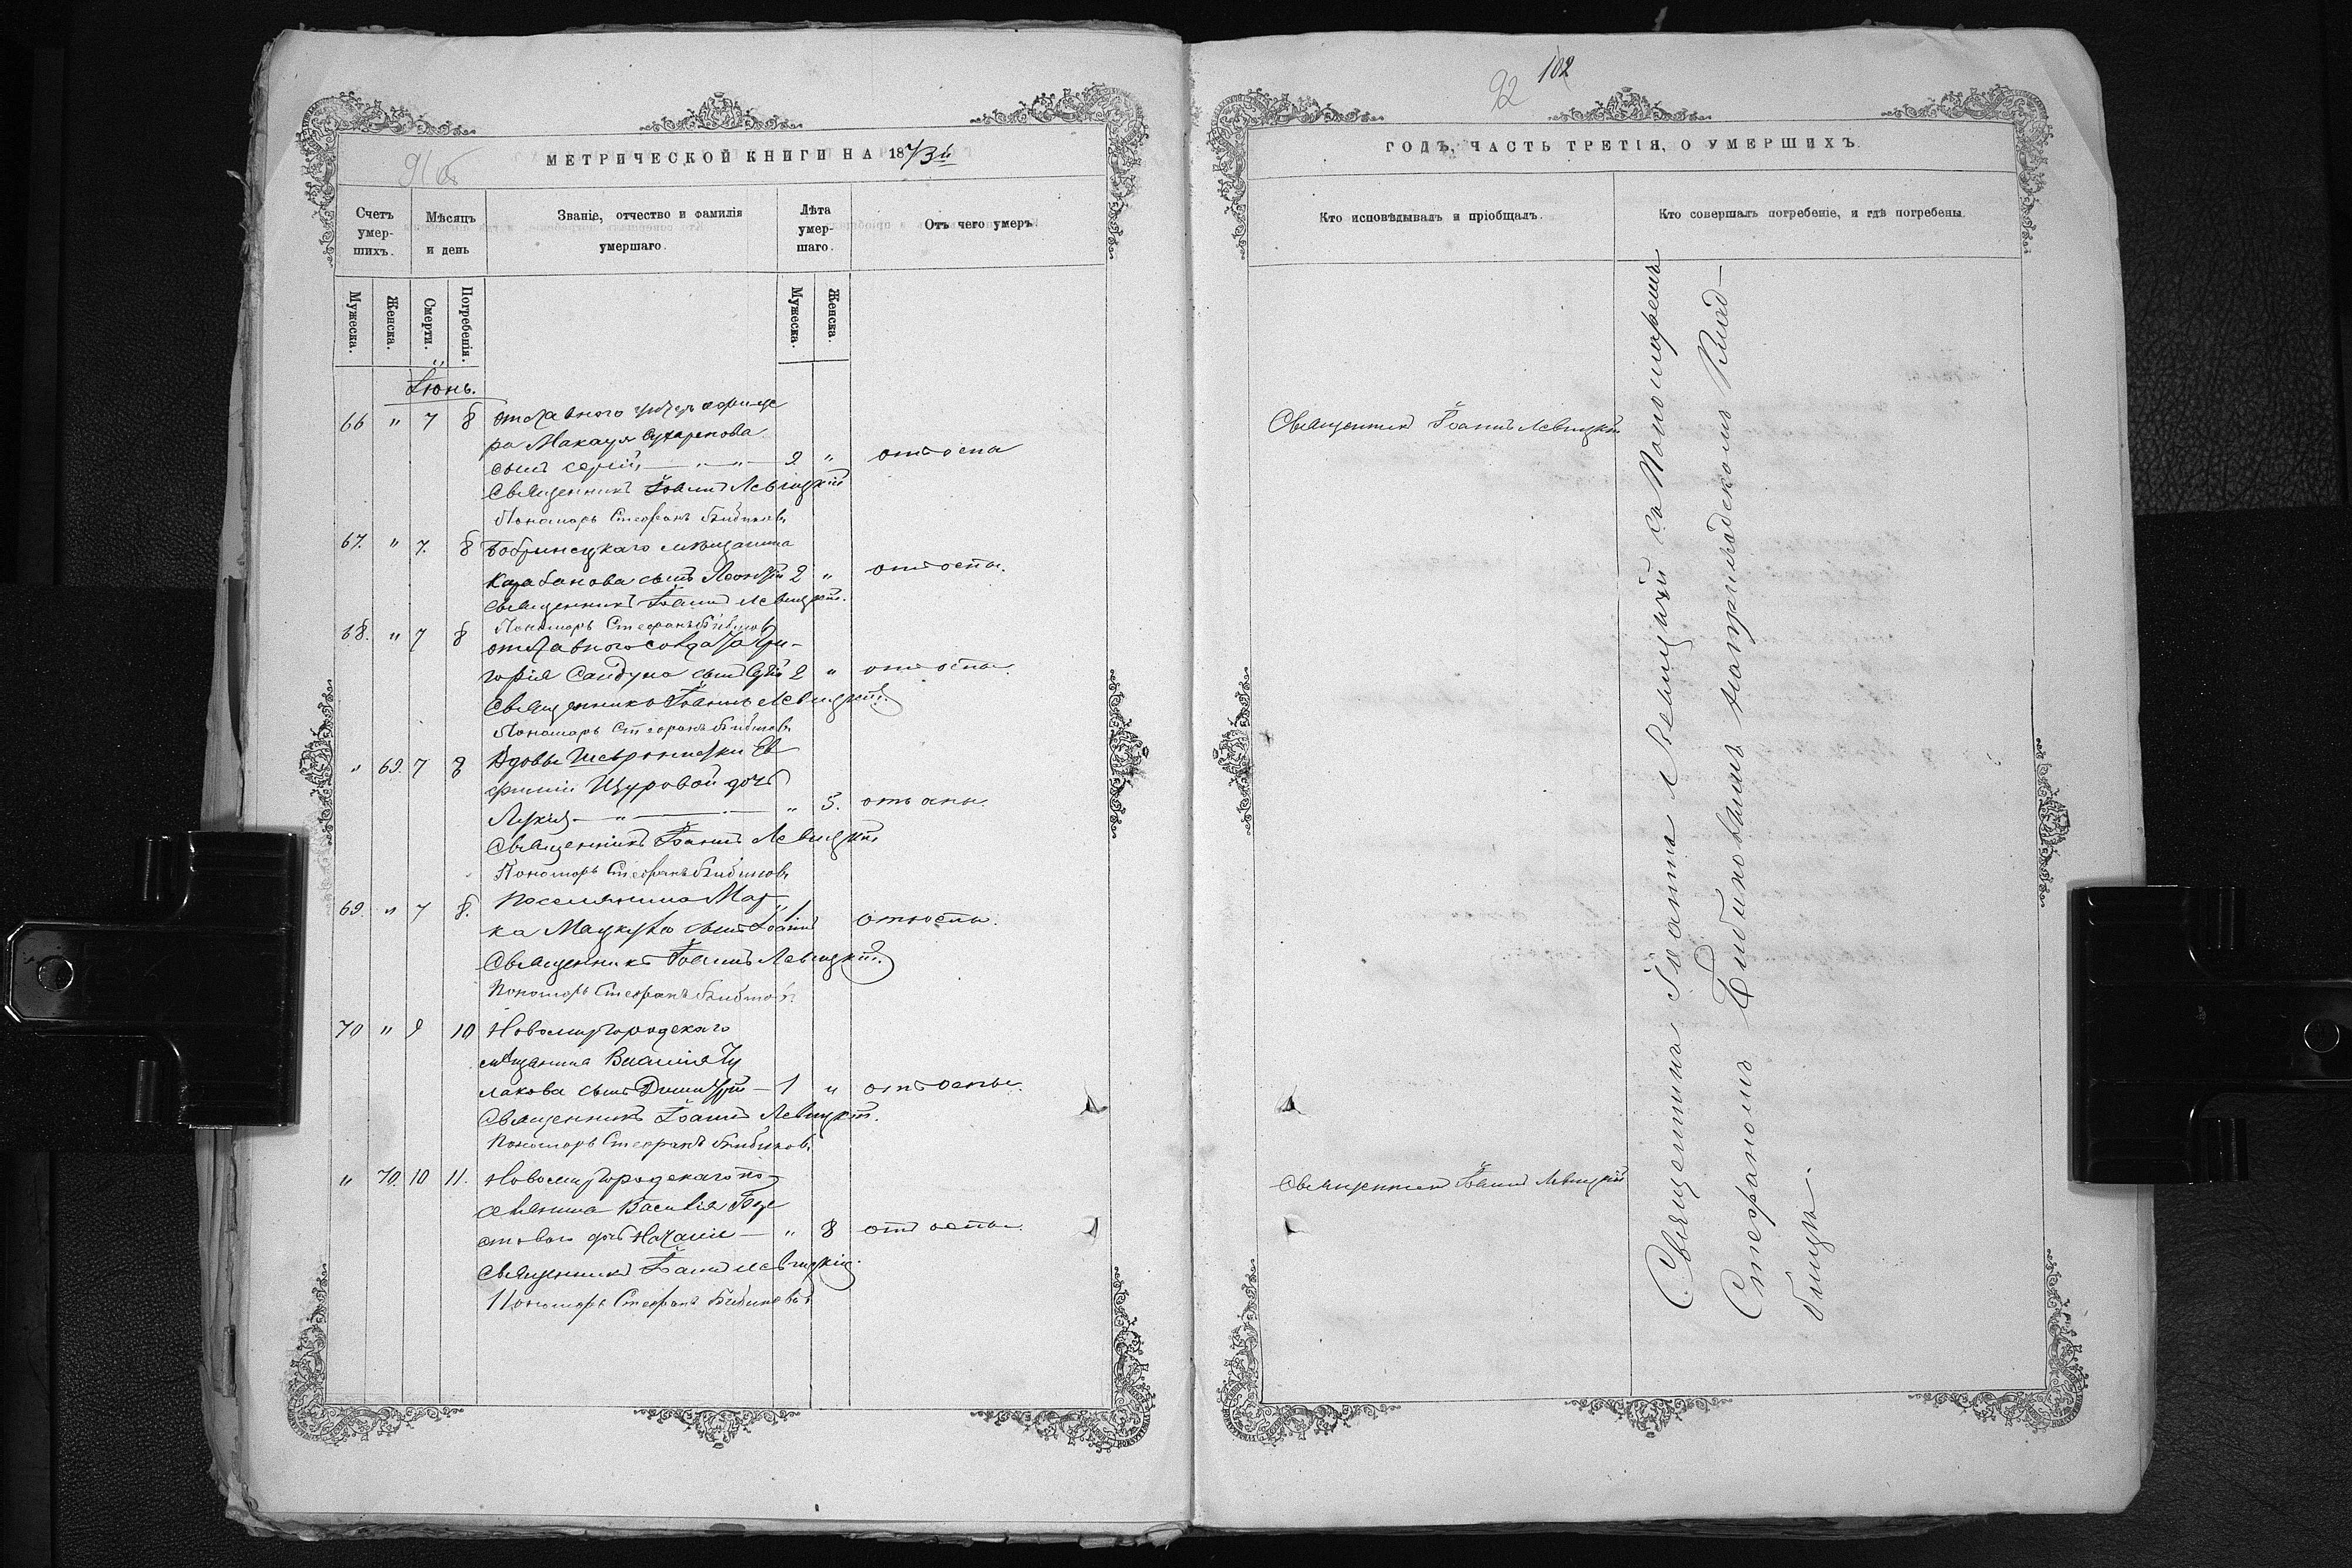 91 об
МЕТРИЧЕСКОЙ КНИГИ НА 1873й
Счетъ умер-шихъ.
Мѣсяцъ и день
Званіе, отчество и фамилія умершаго.
Лѣта умер-шаго.
Отъ чего умеръ.
Мужеска.
Женска.
Смерти.
Погребенія.
Мужеска.
Женска.
Іюнь.
66 " 7 8 Отставного унтеръ офице
ра Макара
сынъ Сергій — " — " — 2 " отъ оспы
Священникъ Іоаннъ Левицкій
Пономарь Стефанъ Бибиковъ
67. " 7. 8 Бобринецкаго мѣщанина
Карабанова сынъ Леонтій 2 " отъ оспы.
Священникъ Іоаннъ Левицкій.
Пономарь Стефанъ Бибиковъ
68. " 7 8 отставного солдата Гри-
горія Сандула сынъ 2 " отъ оспы.
Священникъ Іоаннъ Левицкій.
Пономарь Стефанъ Бибиковъ
" 69. 7 8 Вдовы Ев
фиміи Щуровой дочь
— " — " 5. отъ оспы.
Священникъ Іоаннъ Левицкій
Пономарь Стефанъ Бибиковъ
69. " 7 8. Поселянина Мар
ка сынъ Іоаннъ 1 отъ оспы.
Священникъ Іоаннъ Левицкій.
Пономарь Стефанъ Бибиковъ
70 " 9 10 Новомиргородскаго
мѣщанина
лакова сынъ Димитрій — 1 " отъ оспы.
Священникъ Іоаннъ Левицкій.
Пономарь Стефанъ Бибиковъ.
" 70. 10 11. Новомиргородскаго по
селянина Василія
стового дочь Наталія — " 8 отъ оспы.
Священникъ Іоаннъ Левицкій.
Пономарь Стефанъ Бибиковъ
92 102
ГОДЪ, ЧАСТЬ ТРЕТІЯ, О УМЕРШИХЪ.
Кто исповѣдывалъ и пріобщалъ.
Кто совершалъ погребеніе, и гдѣ погребены.
Священникъ Іоаннъ Левицкій
Священникъ Іоаннъ Левицкій
Священникъ Іоаннъ Левицкій съ Пономаремъ
Стефаномъ Бибиковымъ на приходскомъ клад-
бищѣ.